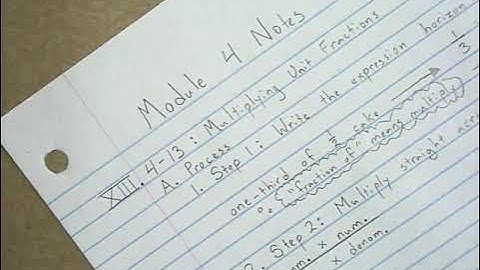 Module 4 Notes
XIII. 4-13: Multiplying Unit Fractions
A. Process
1. Step 1: Write the expression horizon
one-third of 1/3 cake → 1/3
a. "fraction of" means multiply
2. Step 2: Multiply straight acro
num. × num.
× denom.